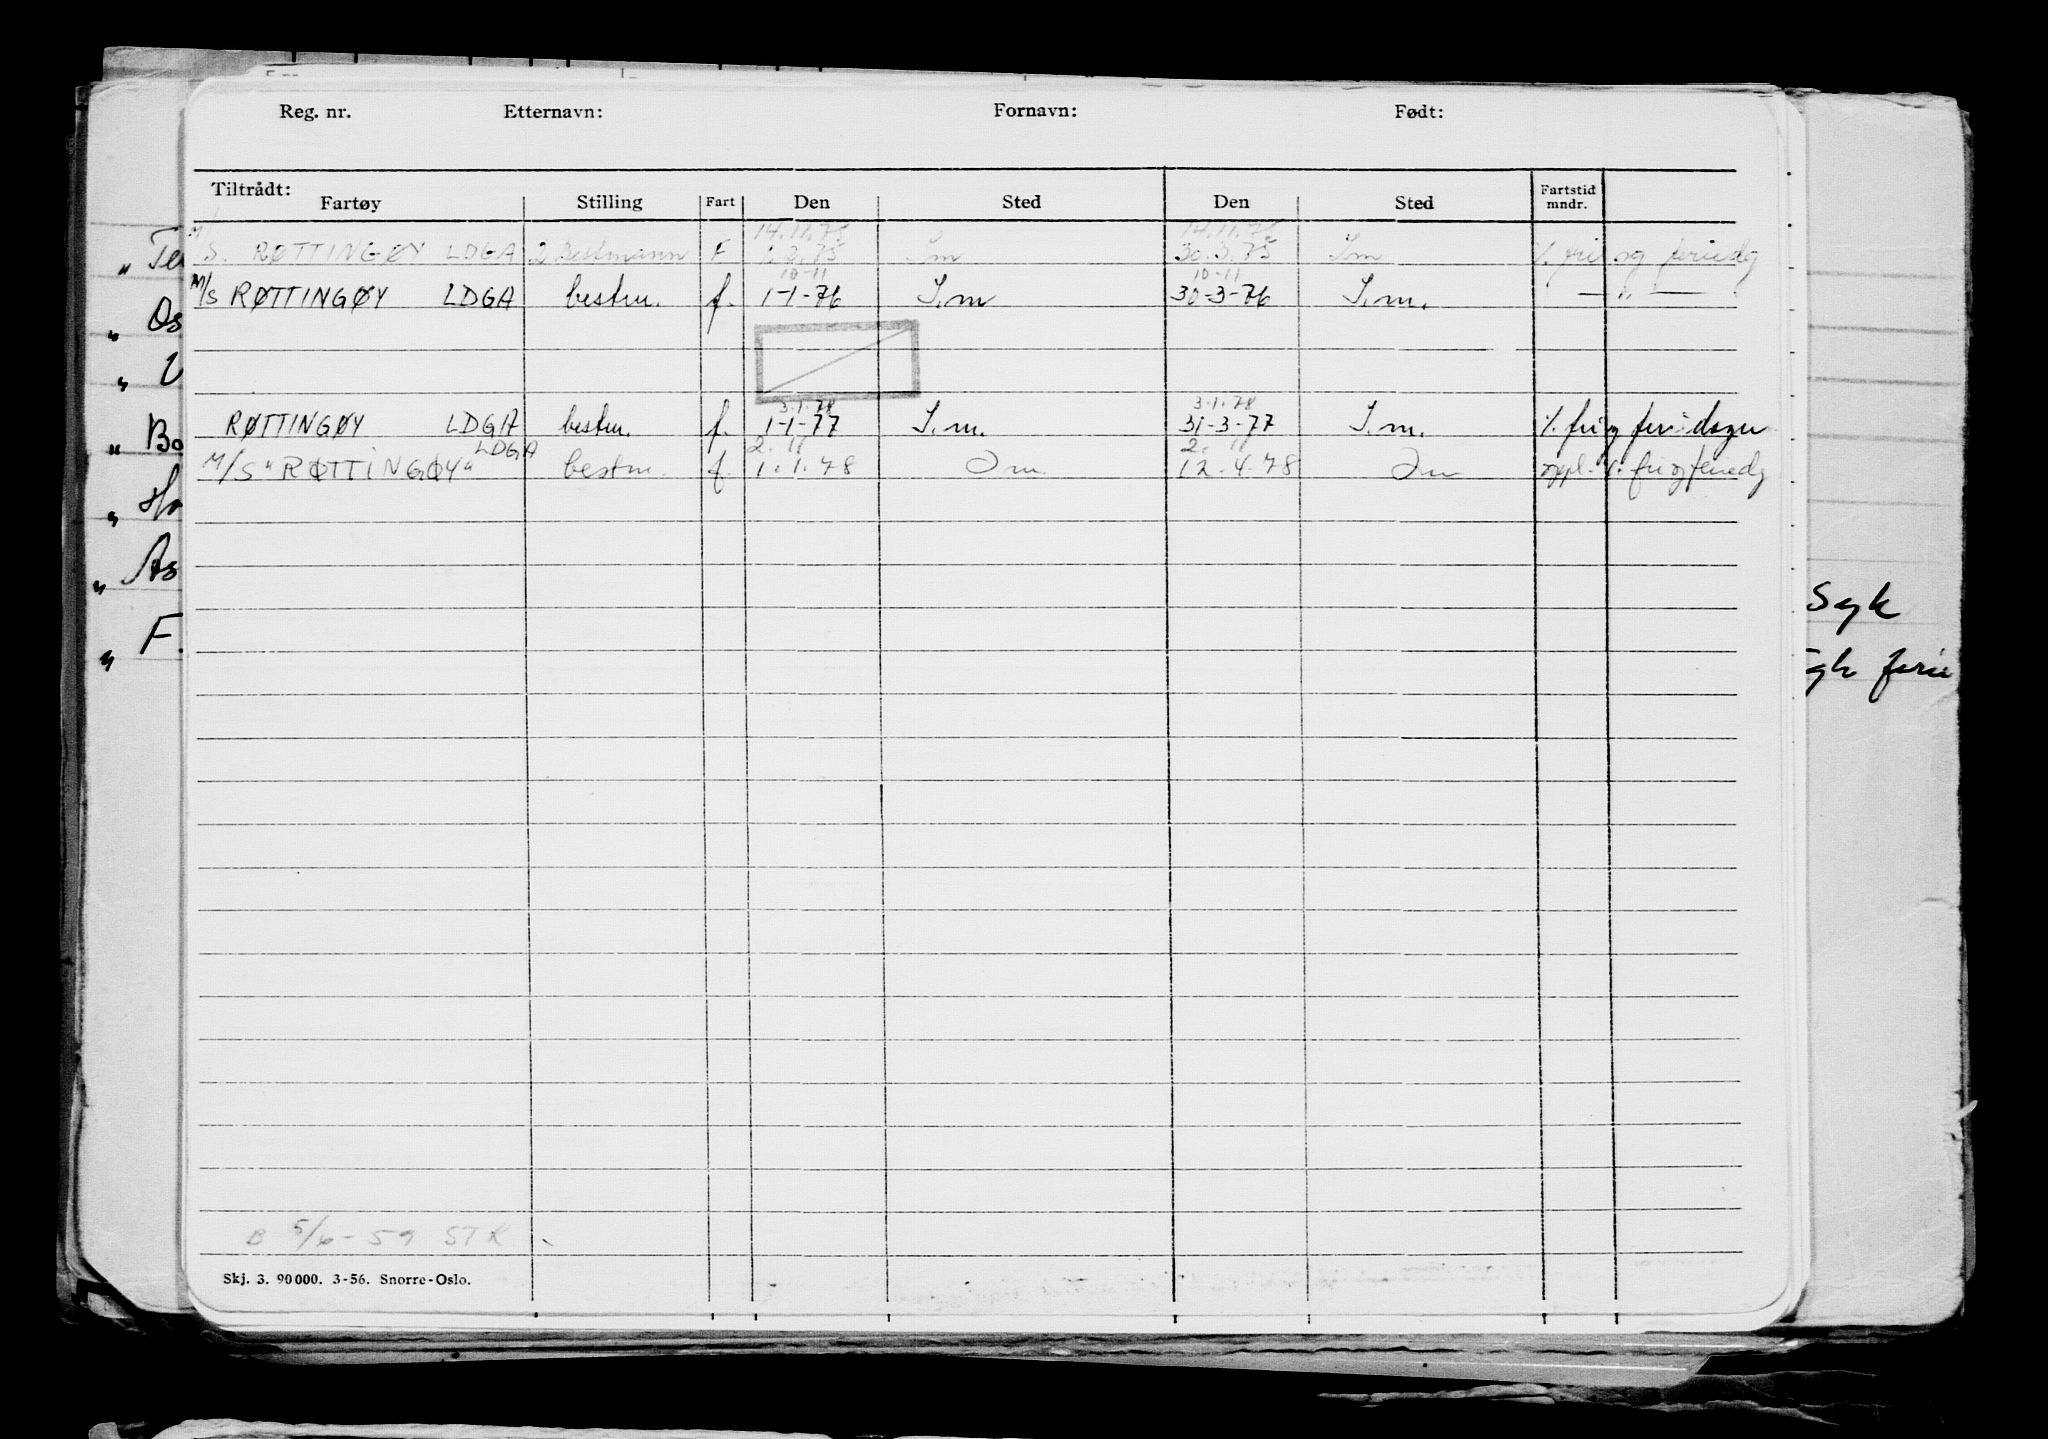 Reg. nr. Etternavn: Fornavn: Født:
Tiltrådt:
Fartøy Stilling Fart Den Sted Den Sted Fartstid mndr.
14.11.75 14.11.75
M/S. RØTTINGØY LDGA 2 Bestmann F 1.3.75 Sm 30.3.75 Sm %. fri og feriedg
10-11 10-11
M/S RØTTINGØY LDGA bestm. f. 1-1-76 S.m 30-3-76 S.m. — " —
3.1.78 3.1.78
RØTTINGØY LDGA bestm. f. 1-1-77 S.m. 31-3-77 S.m. %. fri og feriedager
LDGA 2. 11 2. 11
M/S "RØTTINGØY" bestm. f. 1.1.78 Sm. 12.4.78 Sm oppl. %. fri og feriedg
" Te
" Os
"
" Bo
" Ho
" As
" F.
Syk
ferie
B 5/6-59 STK
Skj. 3. 90000. 3-56. Snorre-Oslo.